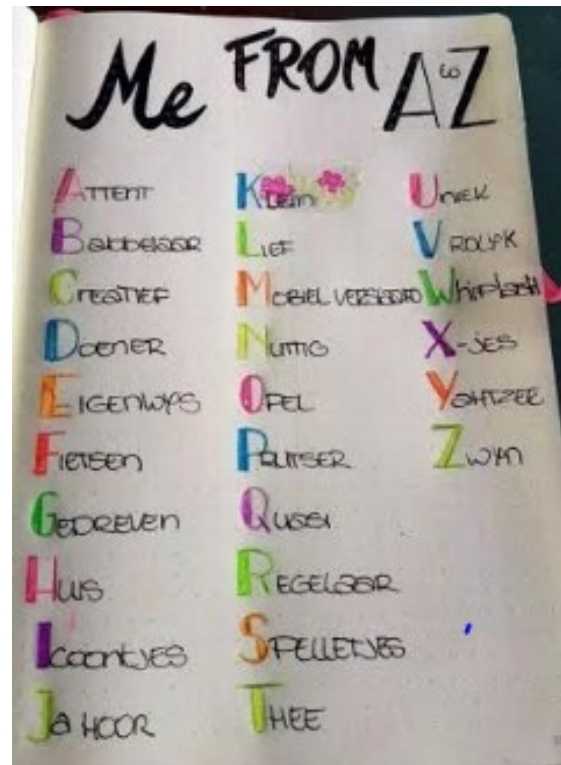 Me FROM A to Z
Attent
Babbelaar
Creatief
Doener
Eigenwijs
Fietsen
Gedreven
Huis
Icoontjes
Ja hoor
Klein
Lief
Mobiel verslaafd
Nuttig
Opel
Pulitser
Quasi
Regelaar
Spelletjes
Thee
Uniek
Vrolijk
Whiplash
X-jes
Yahtzee
Zwijn